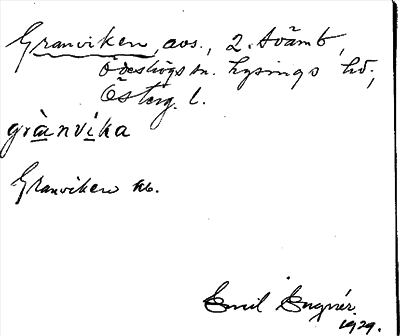 Granviken, avs., 2. tvåmt,
Ödeshögs sn. Lysings hd.,
Österg. l.
grànvíka
Granviken kb.
Emil Engnér.
1929.